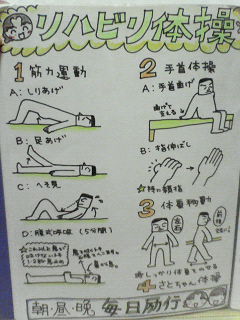 リハビリ体操
1 筋力運動
A:しりあげ
B:足あげ
C:へそ見
D:腹式呼吸(5分間)
2 手首体操
A:手首曲げ
曲げて支える
B:指伸ばし
☆特に親指
3 体重移動
左右
前後
4 さとちゃん体操
朝・昼・晩 毎日励行